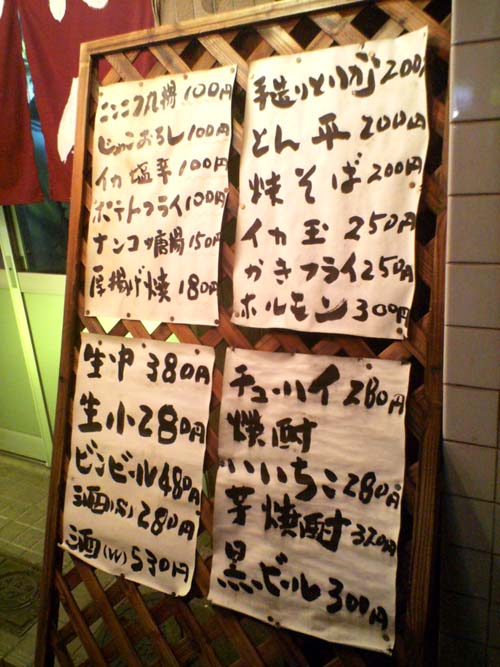 ニンニク丸揚 100円
じゃこおろし 100円
イカ塩辛 100円
ポテトフライ 100円
ナンコツ唐揚 150円
厚揚げ焼 180円
200円
とん平 200円
焼そば 200円
イカ玉 250円
かきフライ 250円
ホルモン 300円
生中 380円
生小 280円
ビンビール 480円
酒(S) 280円
酒(W) 530円
チューハイ 280円
焼酎
いいちこ 280円
芋焼酎 320円
黒ビール 300円